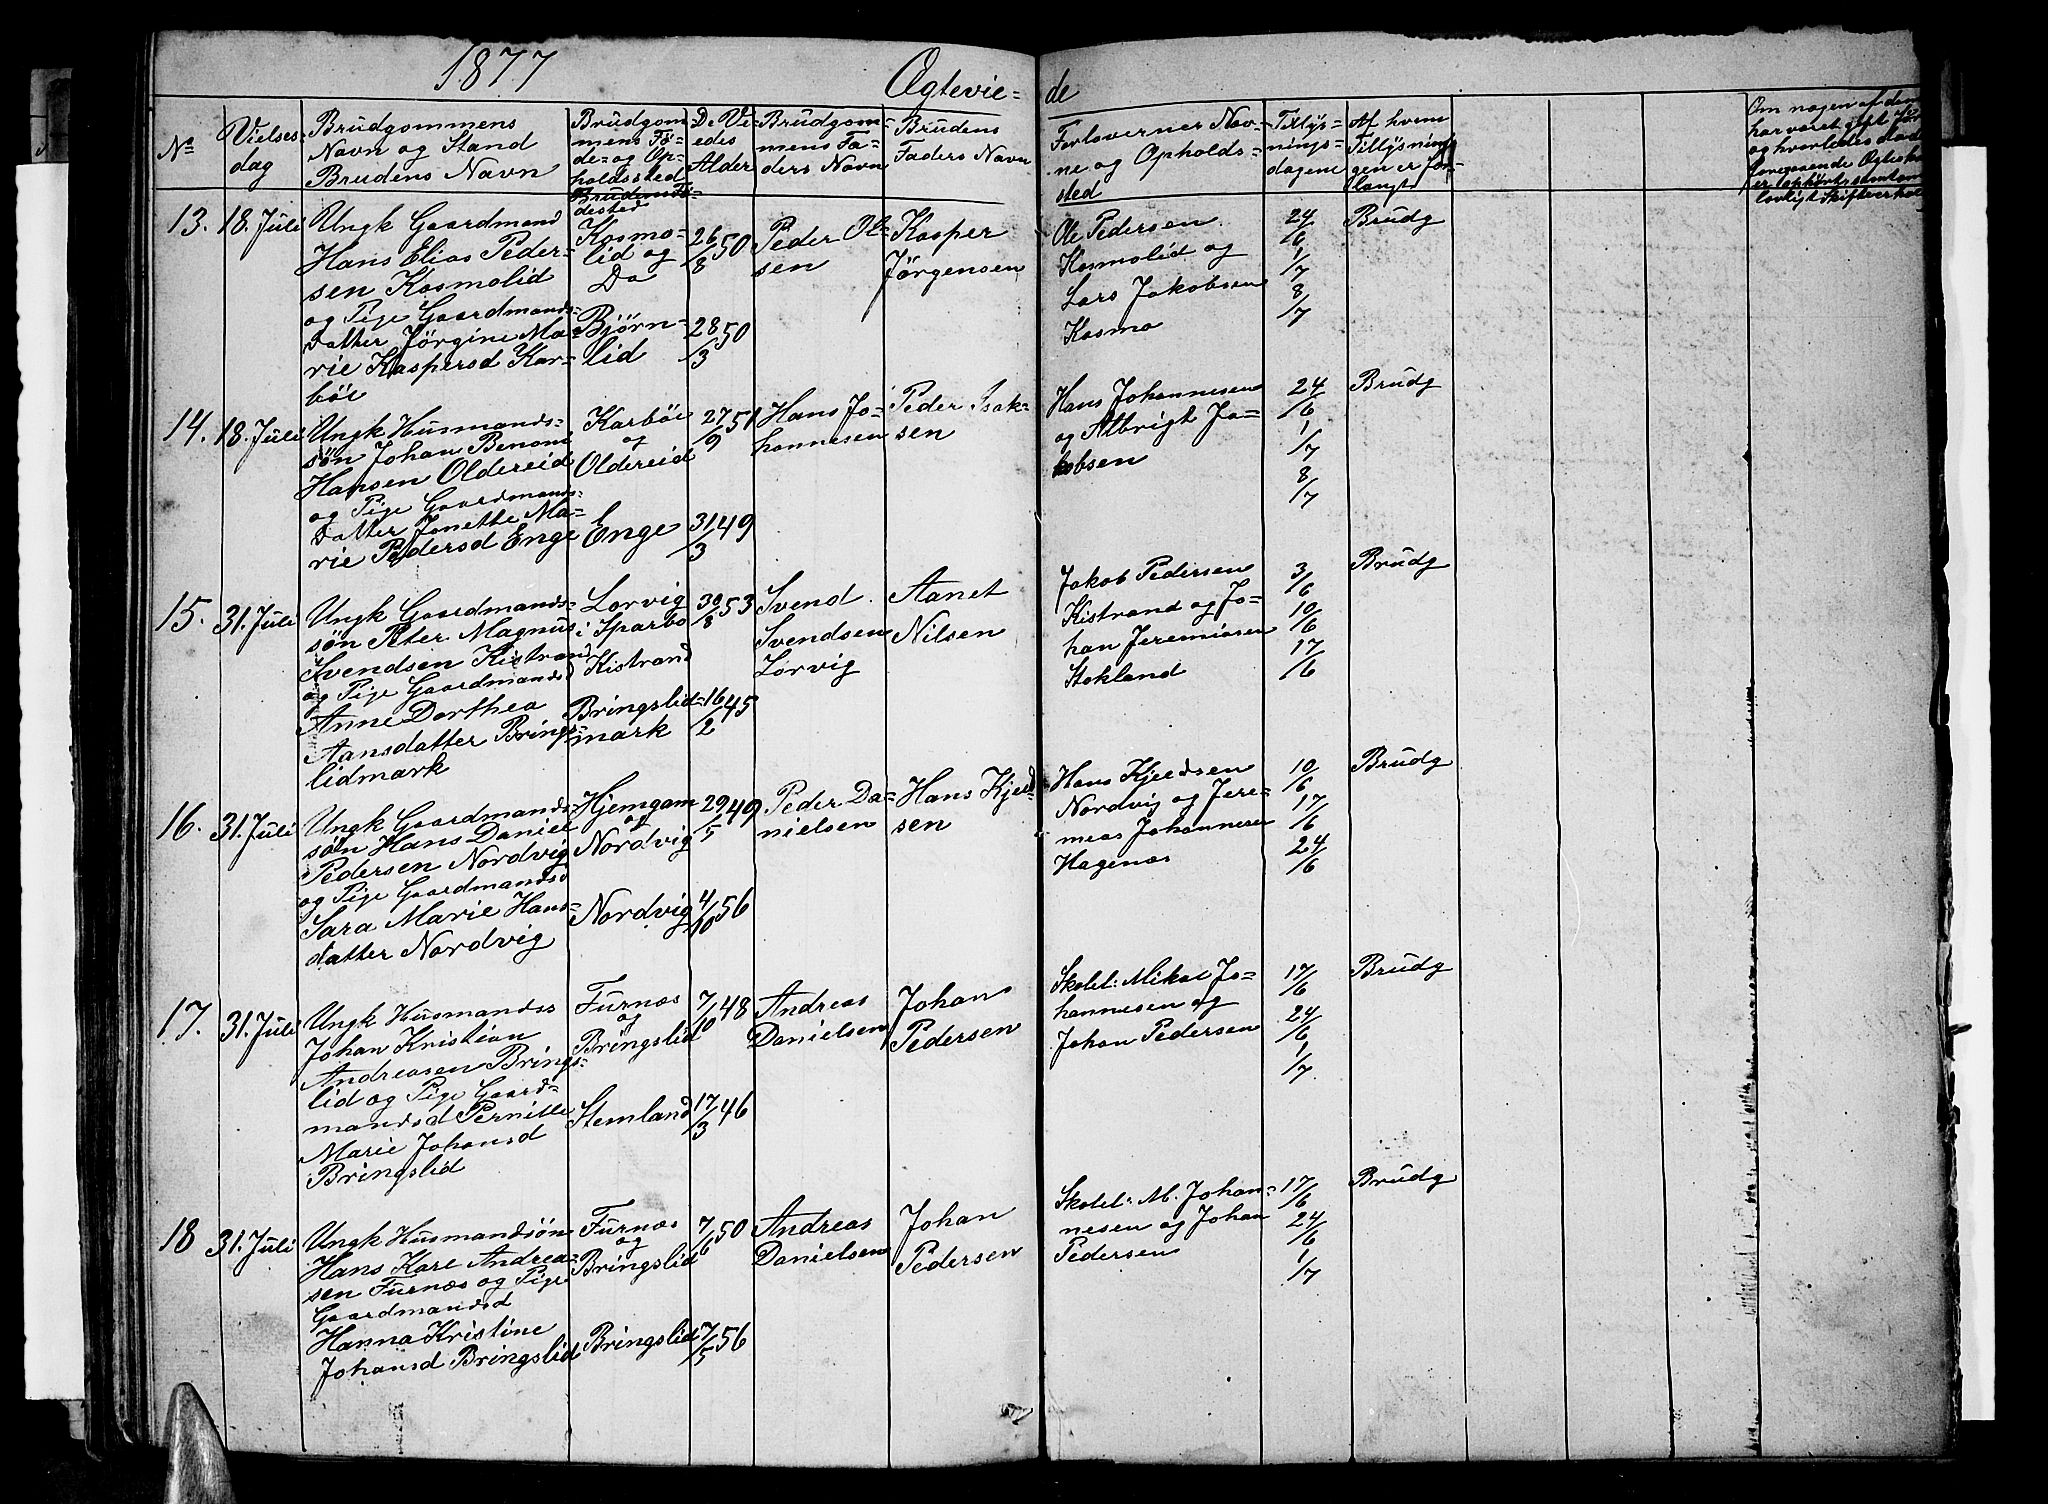 1877
Ægtevie=
de
No
Vielses-
dag
Brudgommens
Navn og Stand
Brudens Navn
Brudgom=
mens Fø=
de= og Op=
holdssted
Brudens Fø=
dested
De Vi=
edes
Alder
Brudgom=
mens Fa=
ders Navn
Brudens
Faders Navn
Forloverner Nav=
ne og Opholds=
sted
Tillys=
nings=
dagene
Af hvem
Tillysnin=
gen er for=
langt
Om nogen af dem
har været gift før
og hvorledes
foregaaende Ægtesk
er ophørt samt om
lovligt Skifte er hol
13.
18. Juli
Ungk Gaardmand
Hans Elias Peder=
sen Kosmolid
og Pige Gaardmands=
datter Jørgine Ma=
rie Kaspersd Kar=
bøe
Kosmo=
lid og
Do
Bjørn=
lid
26/8 50
28/3 50
Peder Ol=
sen
Kasper
Jörgensen
Ole Pedersen
Kosmolid og
Lars Jakobsen
Kosmo
24/6
1/7
8/7
Brudg
14.
18. Juli
Ungk Husmands=
søn Johan Benoni
Hansen Oldereid
og Pige Gaardmands=
datter Jonette Ma=
rie Pedersd Enge
Karbøe
og
Oldereid
Enge
27/9 51
31/3 49
Hans Jo=
hannesen
Peder Isak=
sen
Hans Johannesen
og Albrigt Ja=
kobsen
24/6
1/7
8/7
Brudg
15.
31. Juli
Ungk Gaardmands=
søn Peter Magnus
Svendsen Kistrand
og Pige Gaardmandsd
Anne Dorthea
Aansdatter Brings=
lidmark
Lorvig
i Sparbo
Kistrand
Bringslid=
mark
30/8 53
16/2 45
Svend
Svendsen
Lorvig
Aanet
Nilsen
Jakob Pedersen
Kistrand og Jo=
han Jeremiasen
Stokland
3/6
10/6
17/6
Brudg
16.
31. Juli
Ungk Gaardmands
søn Hans Daniel
Pedersen Nordvig
og Pige Gaardmandsd
Sara Marie Hans=
datter Nordvig
Hjemgam
og
Nordvig
Nordvig
29/5 49
4/10 56
Peder Da=
nielsen
Hans Kjeld=
sen
Hans Kjeldsen
Nordvig og Jere=
mias Johannesen
Hagenæs
10/6
17/6
24/6
Brudg
17.
31. Juli
Ungk Husmandss
Johan Kristian
Andreasen Brings=
lid og Pige Gaard=
mandsd Pernille
Marie Johansd
Bringslid
Furnæs
og
Bringslid
Stemland
7/10 48
17/3 46
Andreas
Danielsen
Johan
Pedersen
Skolel: Mikal Jo=
hannesen og
Johan Pedersen
17/6
24/6
1/7
Brudg
18
31. Juli
Ungk Husmandsøn
Hans Kare Andrea=
sen Furnæs og Pige
Gaardmandsd
Hanna Kristine
Johansd Bringslid
Furnæs
og
Bringslid
Bringslid
7/6 50
7/5 56
Andreas
Danielsen
Johan
Pedersen
Skolel: M. Johan=
nesen og Johan
Pedersen
17/6
24/6
1/7
Brudg